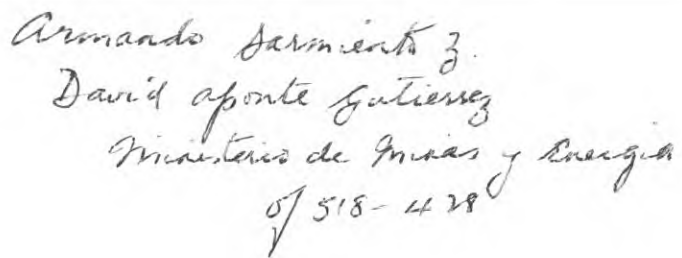 Armando Sarmiento Z.
David Aponte Gutierrez
Ministerio de Minas y Energia
of 518-428